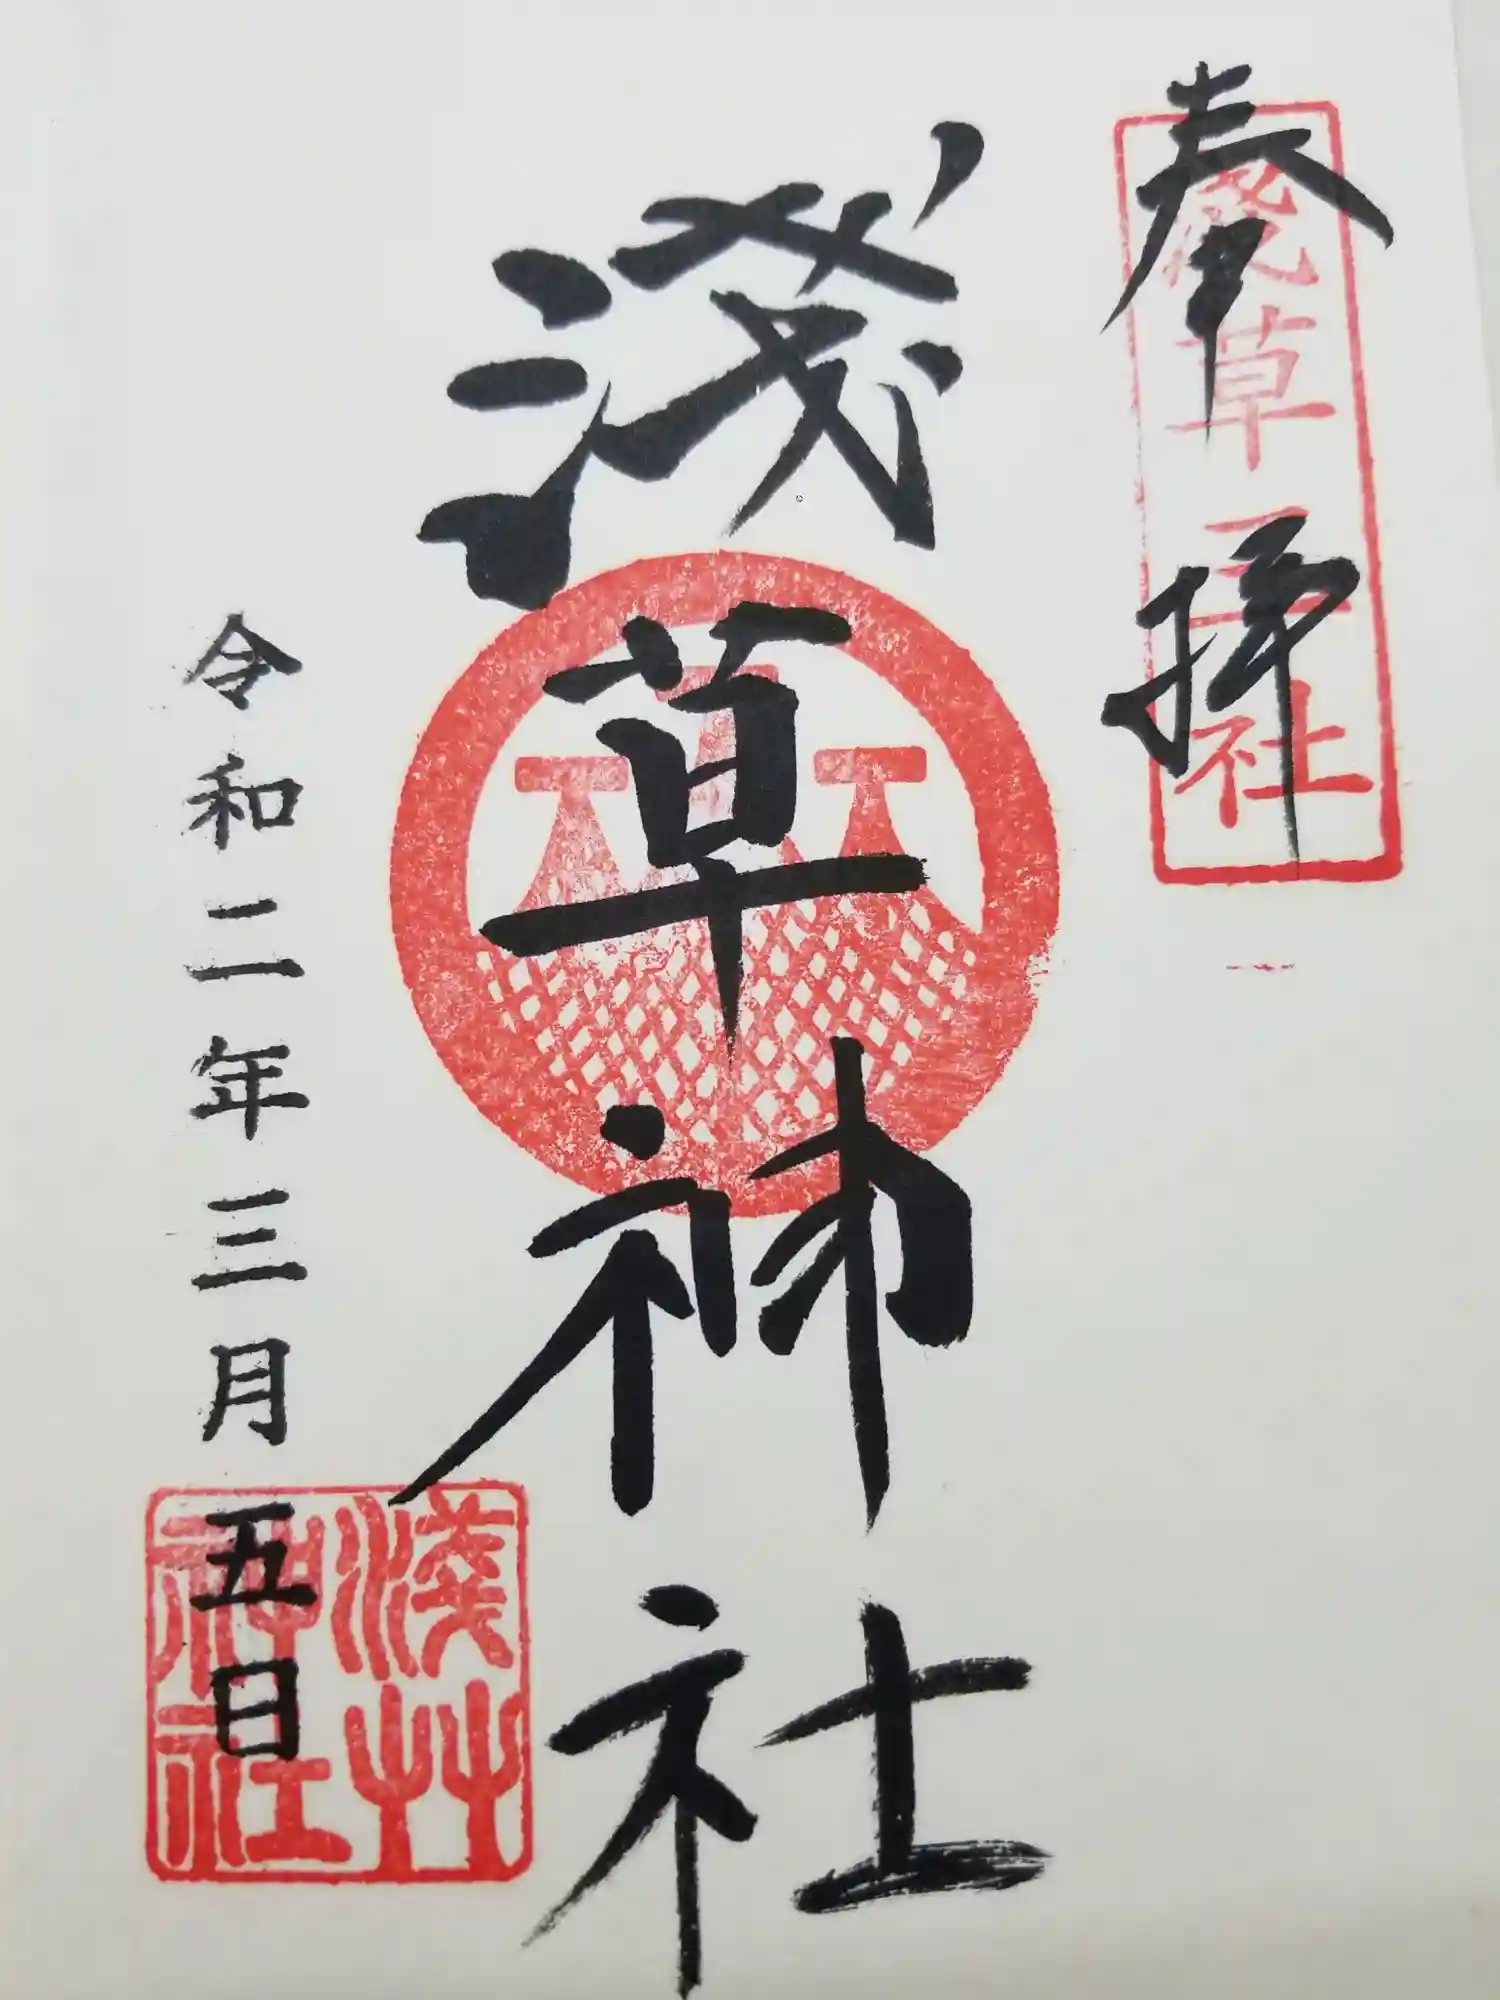 奉拝
浅草三社
浅草神社
令和二年三月五日
淺艸
神社